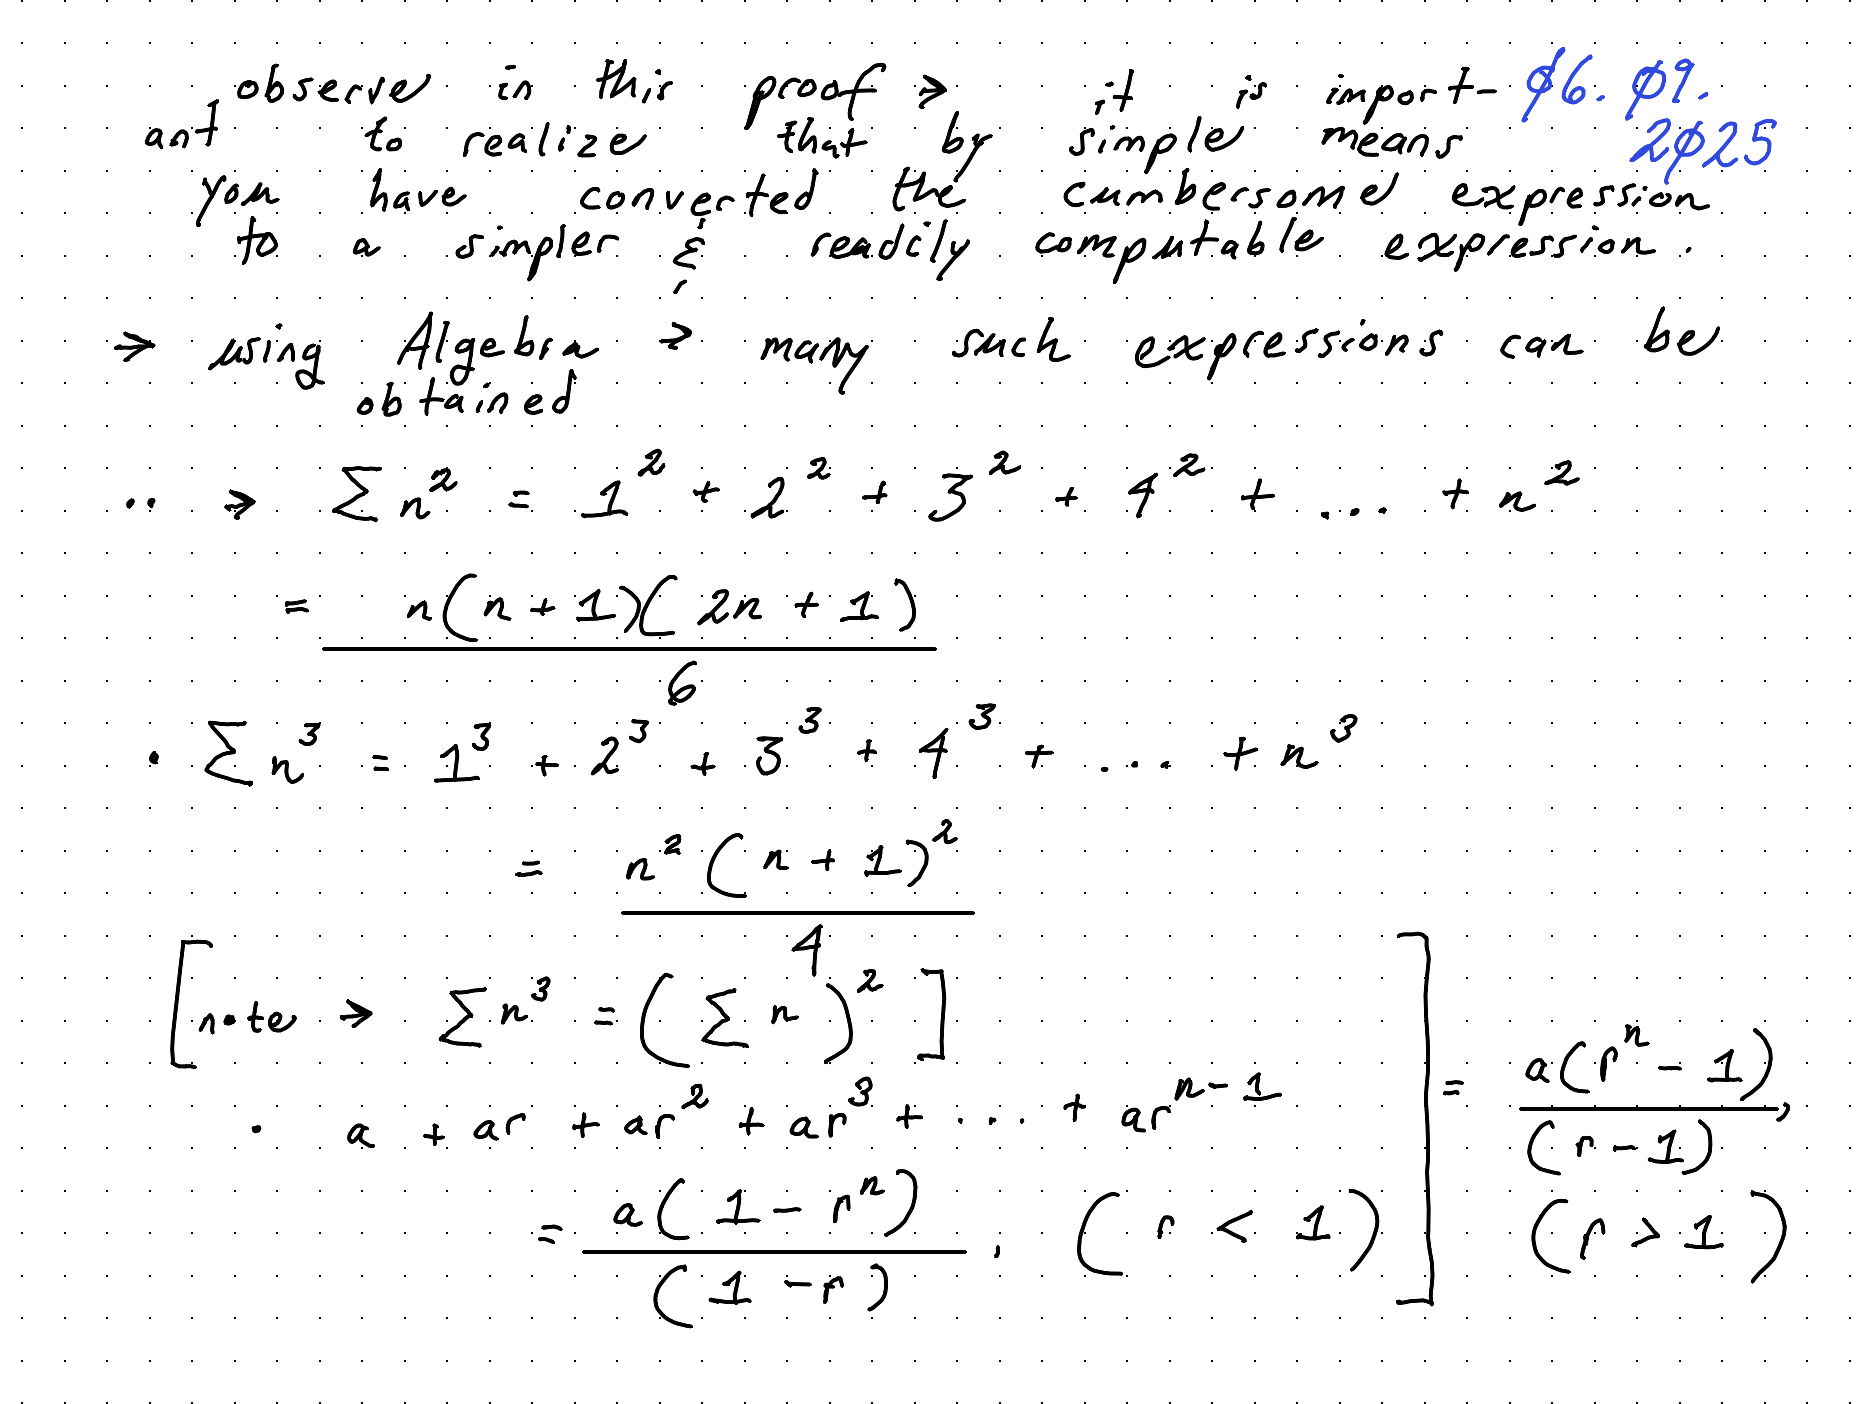 observe in this proof → it is import- ø6. ø9.
ant to realize that by simple means 2ø25
you have converted the cumbersome expression
to a simpler & readily computable expression.
→ using Algebra → many such expressions can be
obtained
·· → ∑ n² = 1² + 2² + 3² + 4² + ... + n²
= n(n + 1)(2n + 1)
6
· ∑ n³ = 1³ + 2³ + 3³ + 4³ + ... + n³
= n² (n + 1)²
4
[note → ∑ n³ = (∑ n)²]
· a + ar + ar² + ar³ + ... + arⁿ⁻¹ ] = a(rⁿ - 1),
(r - 1)
= a(1 - rⁿ), (r < 1) (r > 1)
(1 - r)